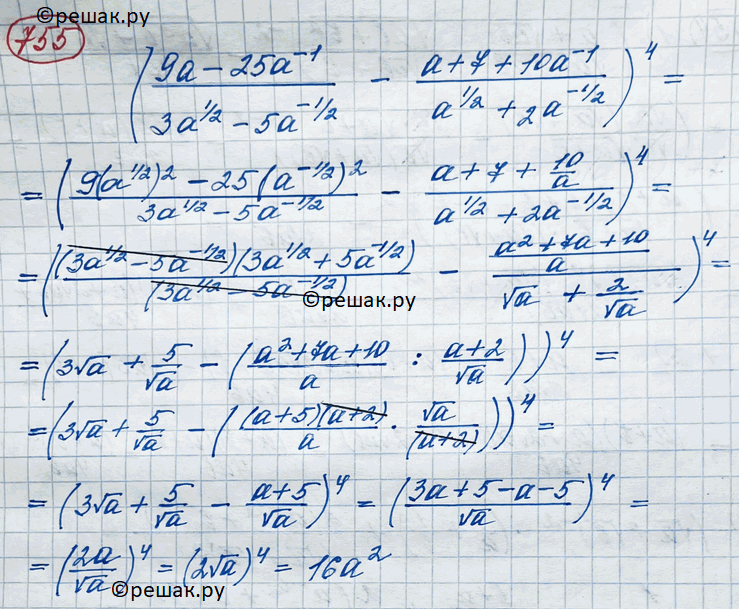 ©решак.ру
755
(9a − 25a⁻¹ / 3a^1/2 − 5a^−1/2 − a + 7 + 10a⁻¹ / a^1/2 + 2a^−1/2)⁴ =
= (9(a^1/2)² − 25(a^−1/2)² / 3a^1/2 − 5a^−1/2 − a + 7 + 10/a / a^1/2 + 2a^−1/2)⁴ =
= ((3a^1/2 − 5a^−1/2)(3a^1/2 + 5a^−1/2) / (3a^1/2 − 5a^−1/2) − a² + 7a + 10 / a / √a + 2/√a)⁴ =
©решак.ру
= (3√a + 5/√a − (a² + 7a + 10 / a : a + 2 / √a))⁴ =
= (3√a + 5/√a − ((a + 5)(a + 2) / a · √a / (a + 2)))⁴ =
= (3√a + 5/√a − a + 5 / √a)⁴ = (3a + 5 − a − 5 / √a)⁴ =
= (2a/√a)⁴ = (2√a)⁴ = 16a²
©решак.ру